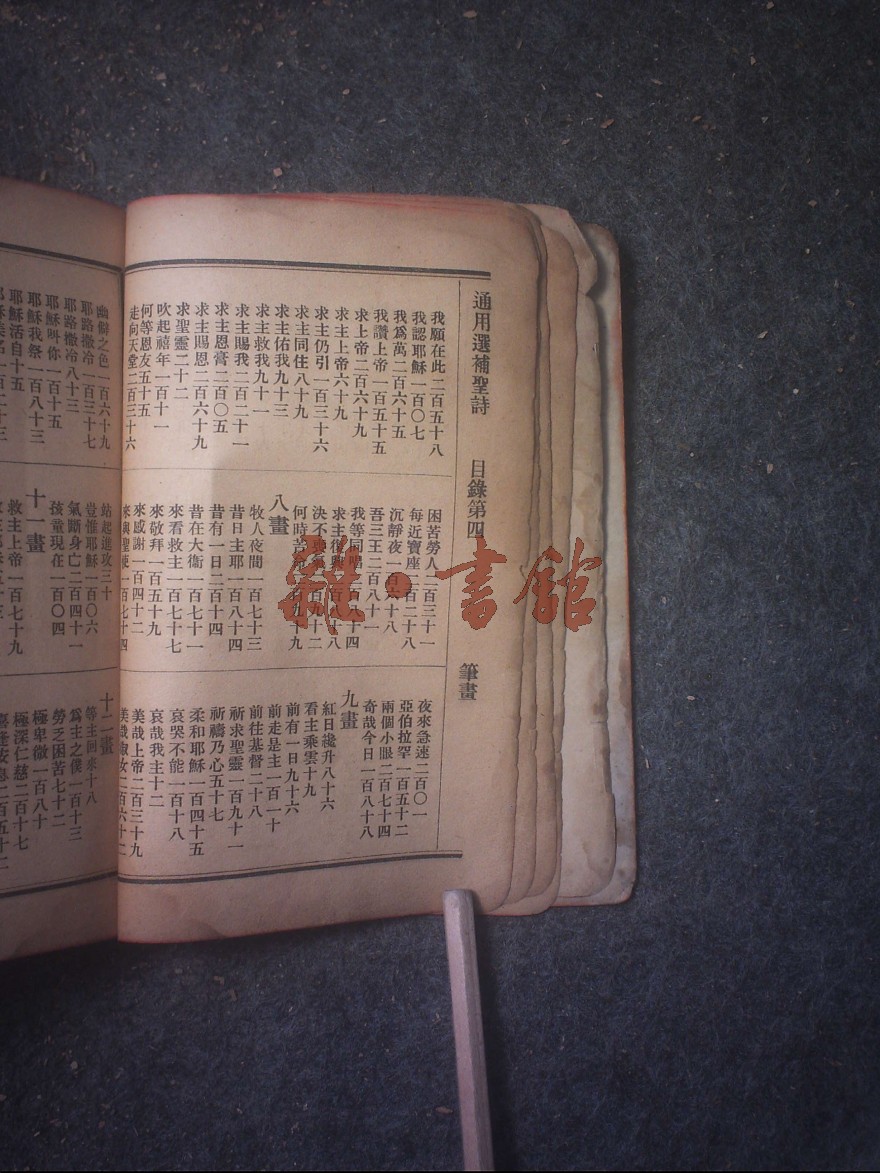 通用選補聖詩 目錄第四 筆畫
我願在此二百五十八
我認耶穌一百〇七
我爲萬二百六十五
我讚上帝一百五十五
求上帝二百六十九
求主上帝六十九
求主仍引一百三十六
求主同住八十九
求主佑我九十三
求主救我九十一
求主賜我二百二十一
求主恩膏二百〇五
求主賜恩二百六十九
求聖靈二十二
吹起禧年一百十一
何等恩友五十五
走向天堂二百三十六
困苦勞人二百三十一
每近寶座一百二十八
沉靜夜一百六十八
吾三王二百八十一
我等同唱一百八十四
求主復興一百八十八
決不喪氣一百九十二
何時苦命一百九十九
八畫
牧人夜間一百七十三
昔日主耶一百八十四
昔有一日二百十四
昔在大衞一百七十一
來看救主一百七十七
來敬拜一百五十九
來感謝一百四十二
來與聖使一百七十四
夜來急速二百〇一
亞伯拉罕一百五十二
兩個小眼二百七十四
奇哉今日一百八十八
九畫
紅日纔升八十六
看主乘雲十九
前有一日九十六
前走是主一百一十
前往基督二十八
祈求聖靈一百九十一
祈禱乃心五十七
柔和耶穌一百四十五
哀哭不能一百十八
哀哉我主十二
美哉上帝二百三十九
美哉淑女二百六十二
幽僻之色一百六十九
耶路撒冷一百三十七
耶路撒冷八十三
耶穌叫你一百十五
耶穌我祭一百八十三
耶穌活自十五
站起進攻三十
豈惟耶穌一百〇六
氣斷身亡二百四十一
孩童現在一百〇四
十一畫
救主上帝一百七十九
十二畫
等主回來十八
爲主之僕一百十三
勞乏困苦七十二
極卑微一百八十
極深仁慈二百十七
雜·書館